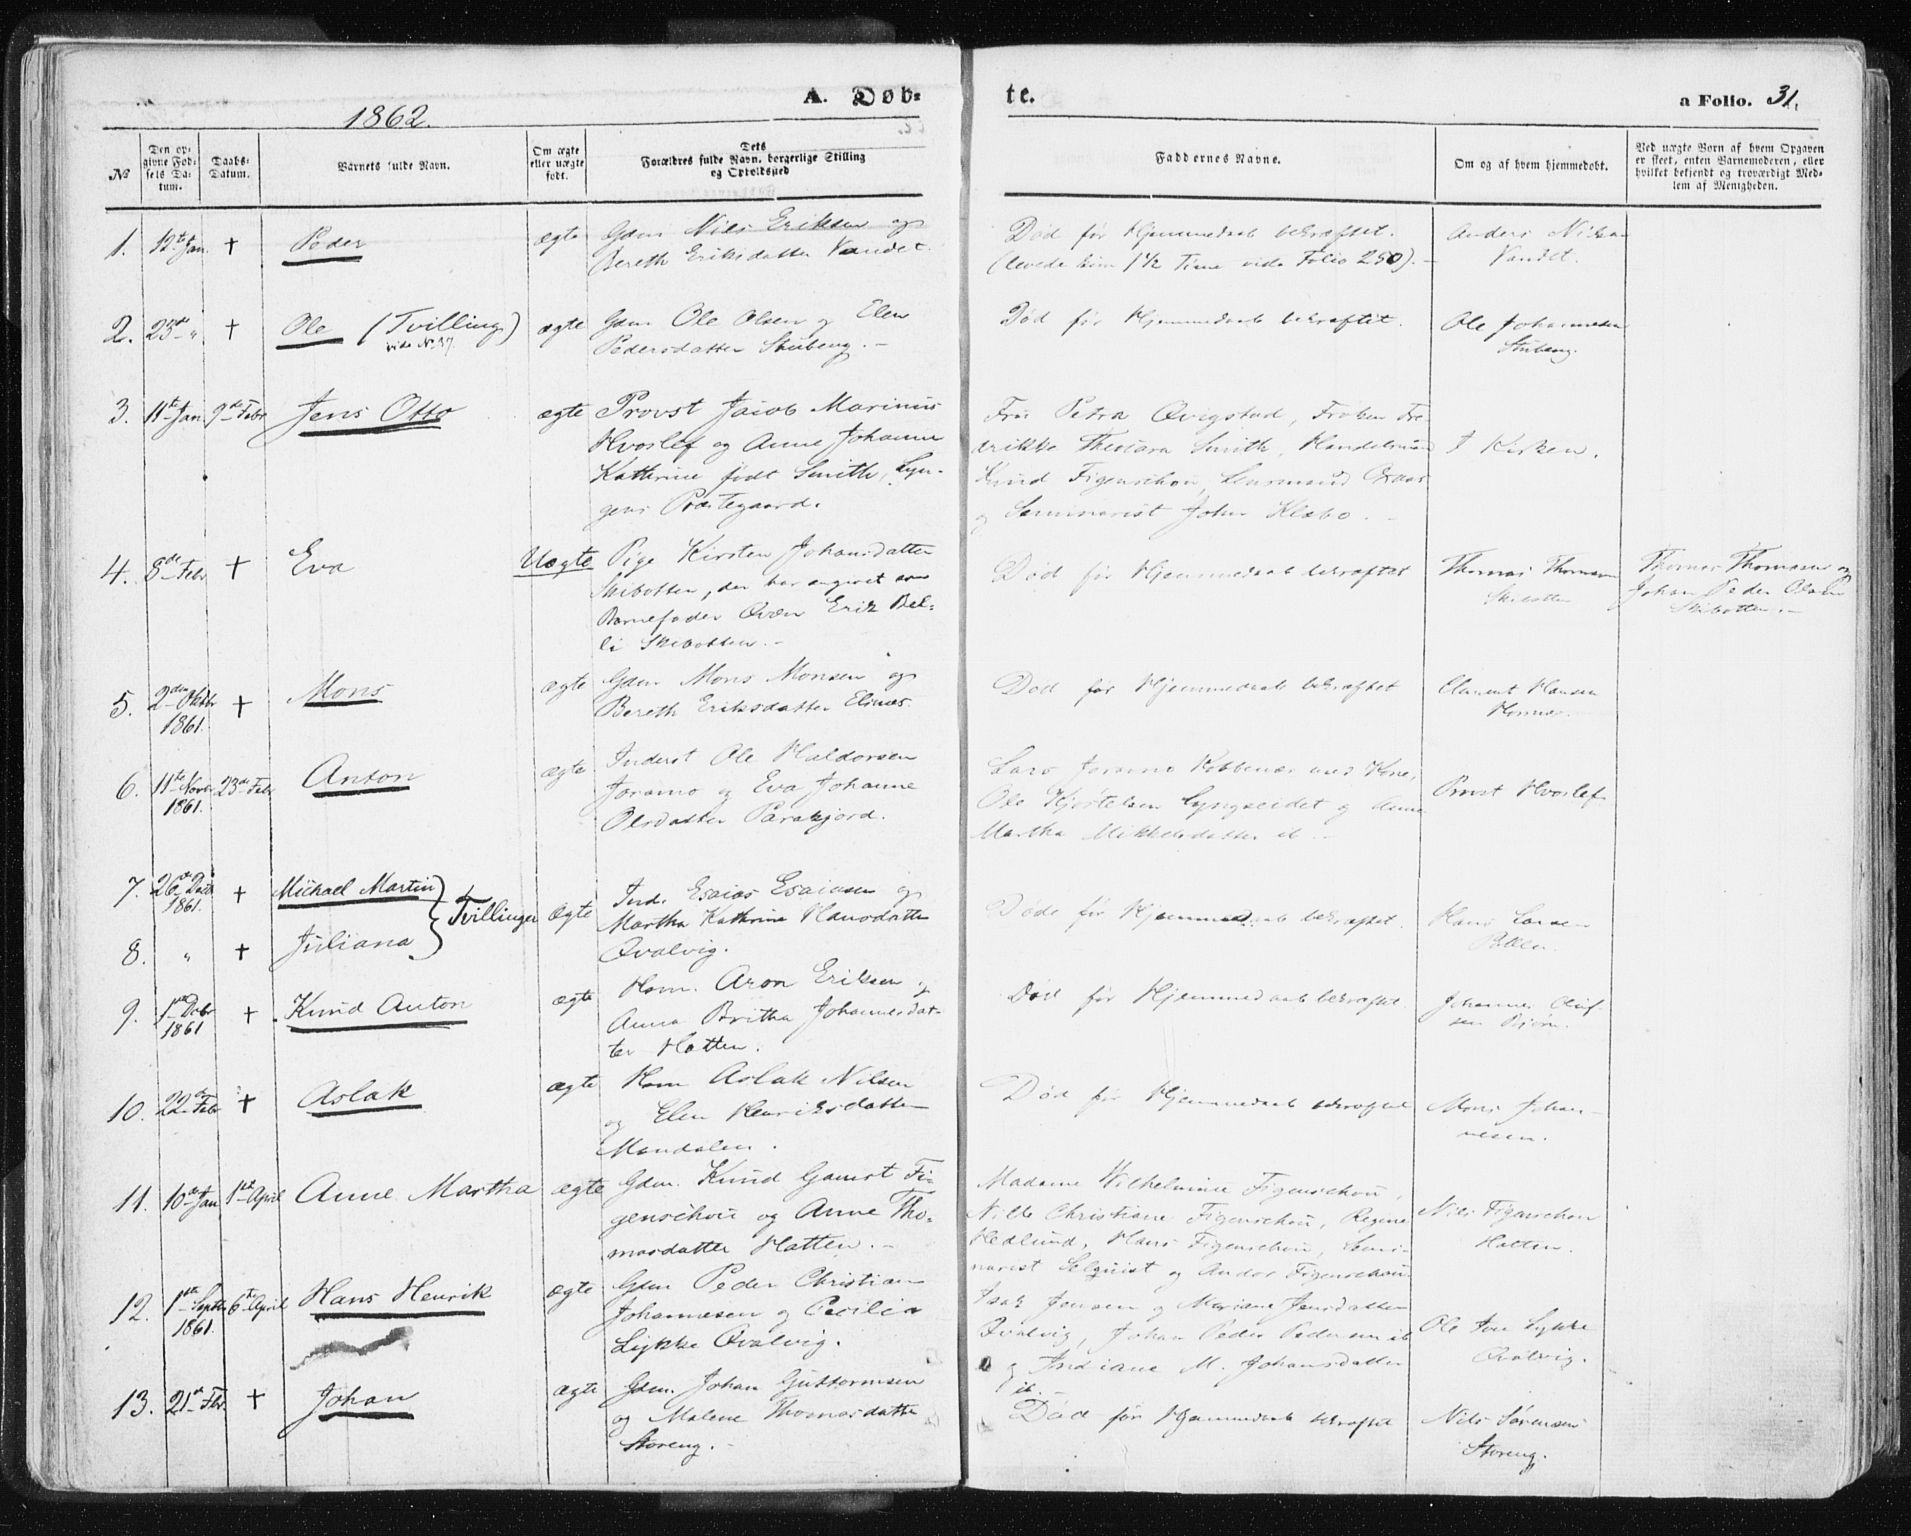 1862.
A. Døb-
te.
a Folio. 31.
№
Den op-
givne Fød-
sels Da-
tum.
Daabs-
Datum.
Barnets fulde Navn.
Om ægte
eller uægte
født.
Dets
Forældres fulde Navn, borgerlige Stilling
og Opholdsted
Faddernes Navne.
Om og af hvem hjemmedøbt.
Ved uægte Børn af hvem Opgaven
er skeet, enten Barnemoderen, eller
hvilket bekjendt og troværdigt Med-
lem af Menigheden.
1. 12te Jan. + Peder ægte
Gdm Nils Eriksen og
Bereth Eriksdatter Vandet.
Død før Hjemmedaab bekræftet.
(levede kun 1½ Time vide Folio 250).
Anders Nilsen
Vandet.
2. 23de " + Ole (Tvilling) ægte
vide No. 37.
Gdm Ole Olsen og Elen
Pedersdatter Stubeng.
Død før Hjemmedaab bekræftet.
Ole Johannesen
Stubeng.
3. 11te Jan 9de Febr Jens Otto ægte
Provst Jacob Marinus
Hvoslef og Anne Johanne
Kathrine født Smith, Lyn-
gens Præstegaard.
Fru Petra Qvigstad, Frøken Fre-
derikke Theodora Smith, Handelsmand
Knud Figenschou, Lensmand
og Seminarist Johan Klæbo.
I Kirken.
4. 8de Febr + Eva Uægte
Pige Kirsten Johansdatter
Skibotten, der har angivet som
Barnefader Qvæn Erik Bel-
li Skibotten.
Død før Hjemmedaab bekræftet
Thomas Thomasen
Skibotten
Thomas Thomasen og
Johan Peder Olsen
Skibotten.
5. 2den Oktbr + Mons ægte
1861.
Gdm Mons Monsen og
Bereth Eriksdatter Elsnæs.
Død før Hjemmedaab bekræftet
Clement Hansen
Hornæs.
6. 11te Novbr 23de Febr Anton ægte
1861.
Inderst Ole Haldorsen
Joramo og Eva Johanne
Olsdatter Parakjord.
Lars Joramo Kobbenæs med Kone,
Ole Kjortelsen Lyngseidet og Anne
Martha Mikkelsdatter ib
Provst Hvoslef
7. 26de Decb + Michael Martin } Tvillinger ægte
1861.
8. " + Juliana
Ind. Esaias Esaiasen og
Martha Kathrine Hansdatter
Qvalvig.
Døde før Hjemmedaab bekræftet.
Hans Larsen
Pollen.
9. 1ste Decbr + Knud Anton ægte
1861
Hom. Aron Eriksen og
Anna Britha Johannesdat-
ter Hatten.
Død før Hjemmedaab bekræftet.
Johannes Oluf-
sen Bjørn.
10. 22de Feb + Aslak ægte
Hom Aslak Nilsen
og Elen Henriksdatter
Mandalen.
Død før Hjemmedaab bekræftet
Mons Johan-
nesen.
11. 10de Jan. 1ste April Anne Martha ægte
Gdm. Knud Gamst Fi-
genschou og Anne Tho-
masdatter Hatten.
Madame Wilhelmine Figenschou,
Nille Christiane Figenschou, Regine
Hedlund, Hans Figenschou, Semi-
narist Selquist og Andor Figenschou.
Nils Figenschou
Hatten.
12. 1ste Septbr 6te April Hans Henrik ægte
1861.
Gdm Peder Christian
Johannesen og Cecilia
Lykke Qvalvig.
Isak Jensen og Mariane Jensdatter
Qvalvig, Johan Peder Pedersen ib
og Indiane M. Johansdatter
ib.
Ole Jon Lykke
Qvalvig.
13. 21de Febr. + Johan ægte
Gdm. Johan Guttormsen
og Malene Thomasdatter
Storeng.
Død før Hjemmedaab bekræftet
Nils Sørensen
Storeng.